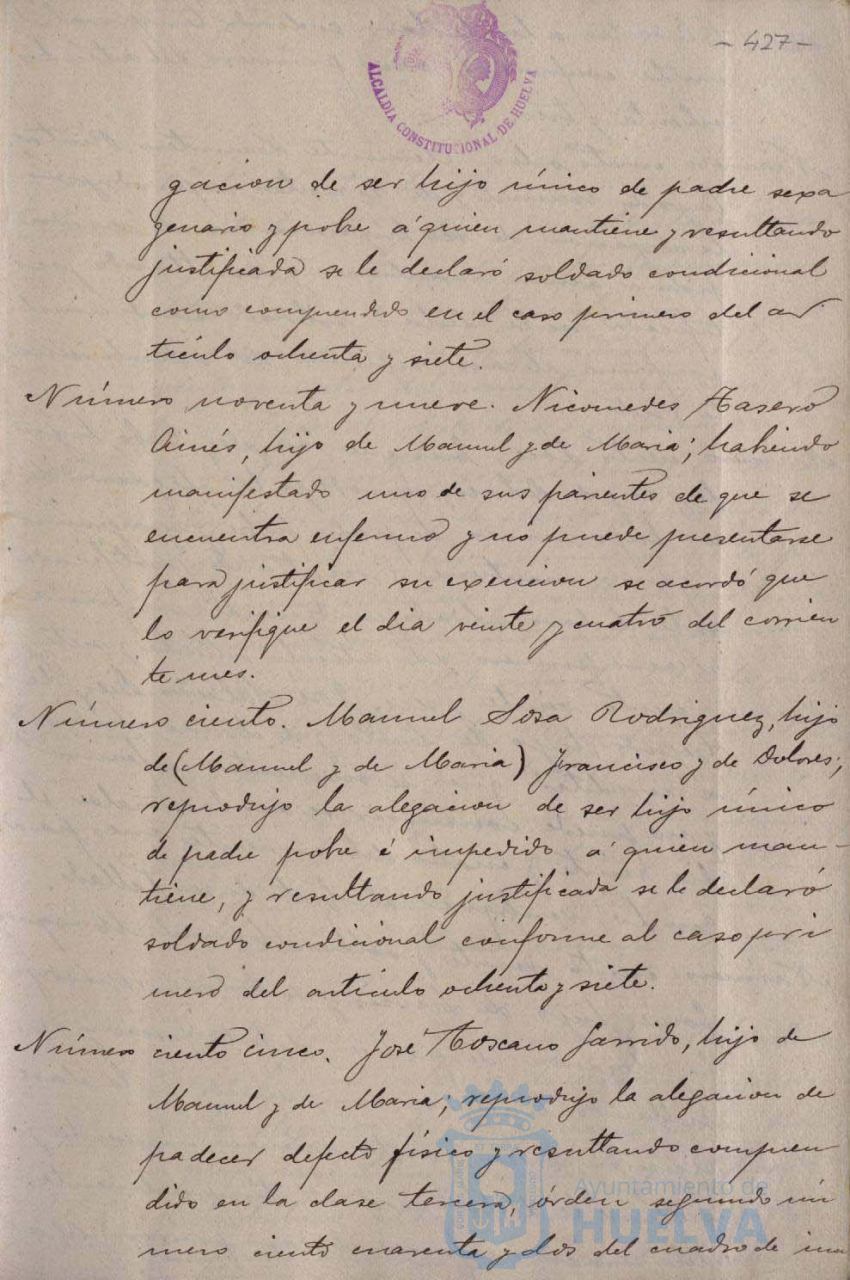 - 427 -
ALCALDIA CONSTITUCIONAL DE HUELVA
gacion de ser hijo único de padre sexa
genario y pobre á quien mantiene y resultando
justificada se le declaró soldado condicional
como comprendido en el caso primero del ar
tículo ochenta y siete.
Número noventa y nueve. Nicomedes Tasero
hijo de Manuel y de Maria; habiendo
manifestado uno de sus parientes de que se
encuentra enfermo y no puede presentarse
para justificar su exencion se acordó que
lo verifique el dia veinte y cuatro del corrien
te mes.
Número ciento. Manuel Sosa Rodriguez, hijo
de (Manuel y de Maria) Francisco y de Dolores;
reprodujo la alegacion de ser hijo único
de padre pobre é impedido á quien man-
tiene, y resultando justificada se le declaró
soldado condicional conforme al caso pri
mero del artículo ochenta y siete.
Número ciento cinco. José Toscano Garrido, hijo de
Manuel y de Maria; reprodujo la alegacion de
padecer defecto físico y resultando compren
dido en la clase tercera, órden segundo nú
mero ciento cuarenta y dos del cuadro de inu
Ayuntamiento de
HUELVA